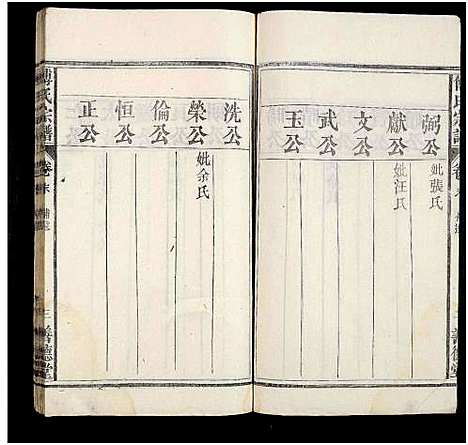 弼公
妣張氏
獻公
妣汪氏
文公
武公
玉公
洗公
榮公
妣余氏
倫公
恒公
正公
傅氏宗譜
卷末
三
善德堂